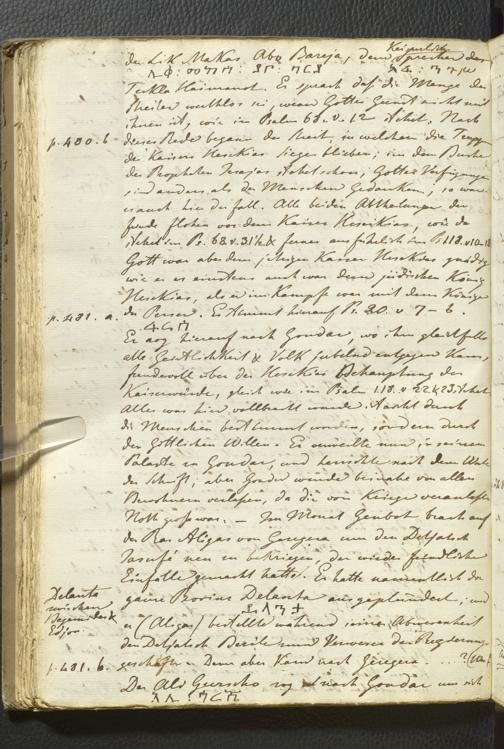 der Lik Makas Abu Bareja, dem Kaiserlichen Sprecher des
Tekla Haimanot. Er sprach daß die Menge der
Streiter werthlos sei, wenn Gottes Gunst nicht mit
ihnen ist, wie im Psalm v. 12 steht. Nach
p. 480. b - dieser Rede begann der Streit, in welchem die Truppen
des Kaisers Heskias Sieger blieben; im dem Buche
des Propheten Jesajas steht schon, Gottes Verfügungen
sind anders als der Menschen Gedanken; so war
es auch hier der Fall. Alle beiden Abtheilungen der
Feinde flohen vor dem Kaiser Heskias, wie da
steht im Ps. 68. v. 31 & ferner ausführlich im Ps. 118. v 10-12
Gott war aber dem jetzigen Kaiser Heskias gnädig
wie er es einstens auch war dem jüdischen König
Heskias, als er im Kampfe war mit dem Könige
p. 481. a. der Perser. Er stimmt hierauf Ps. 20. v 7 - 6.
Er zog hierauf nach Gondar, wo ihm gleichfalls
alle Geistlichkeit & Volk jubelnd entgegen kam,
freudevoll über des Heskias Behauptung der
Kaiserwürde, gleich wie im Psalm 118. v 22 & 23. steht
Alles was hier vollbracht wurde, nicht durch
die Menschen bestimmt worden, sondern durch
den Göttlichen Willen. Er verweilte nun in seinem
Palaste in Gondar, und herrschte nach dem Worte
der Schrift; aber Gondar wurde beinahe von allen
Bewohnern verlassen, da die vom Kriege veranlaßte
Noth groß war. - Im Monat Genbot brach auf
der Ras Aligas von Geregera um den Detjatsch
neu zu bekriegen, der wieder feindliche
Einfälle gemacht hatte. Er hatte namentlich die
Delanta
zwischen
Begemder &
Edjou
ganze Provinz Delanta ausgeplündert; und
er (Aligas) bestellte während seiner Abwesenheit
den Detjatsch zum Verweser der Regierungs
p. 481. b. geschäfte. Dann aber kam nach Geregera
Der Ali Guescho zog nach Gondar um sich